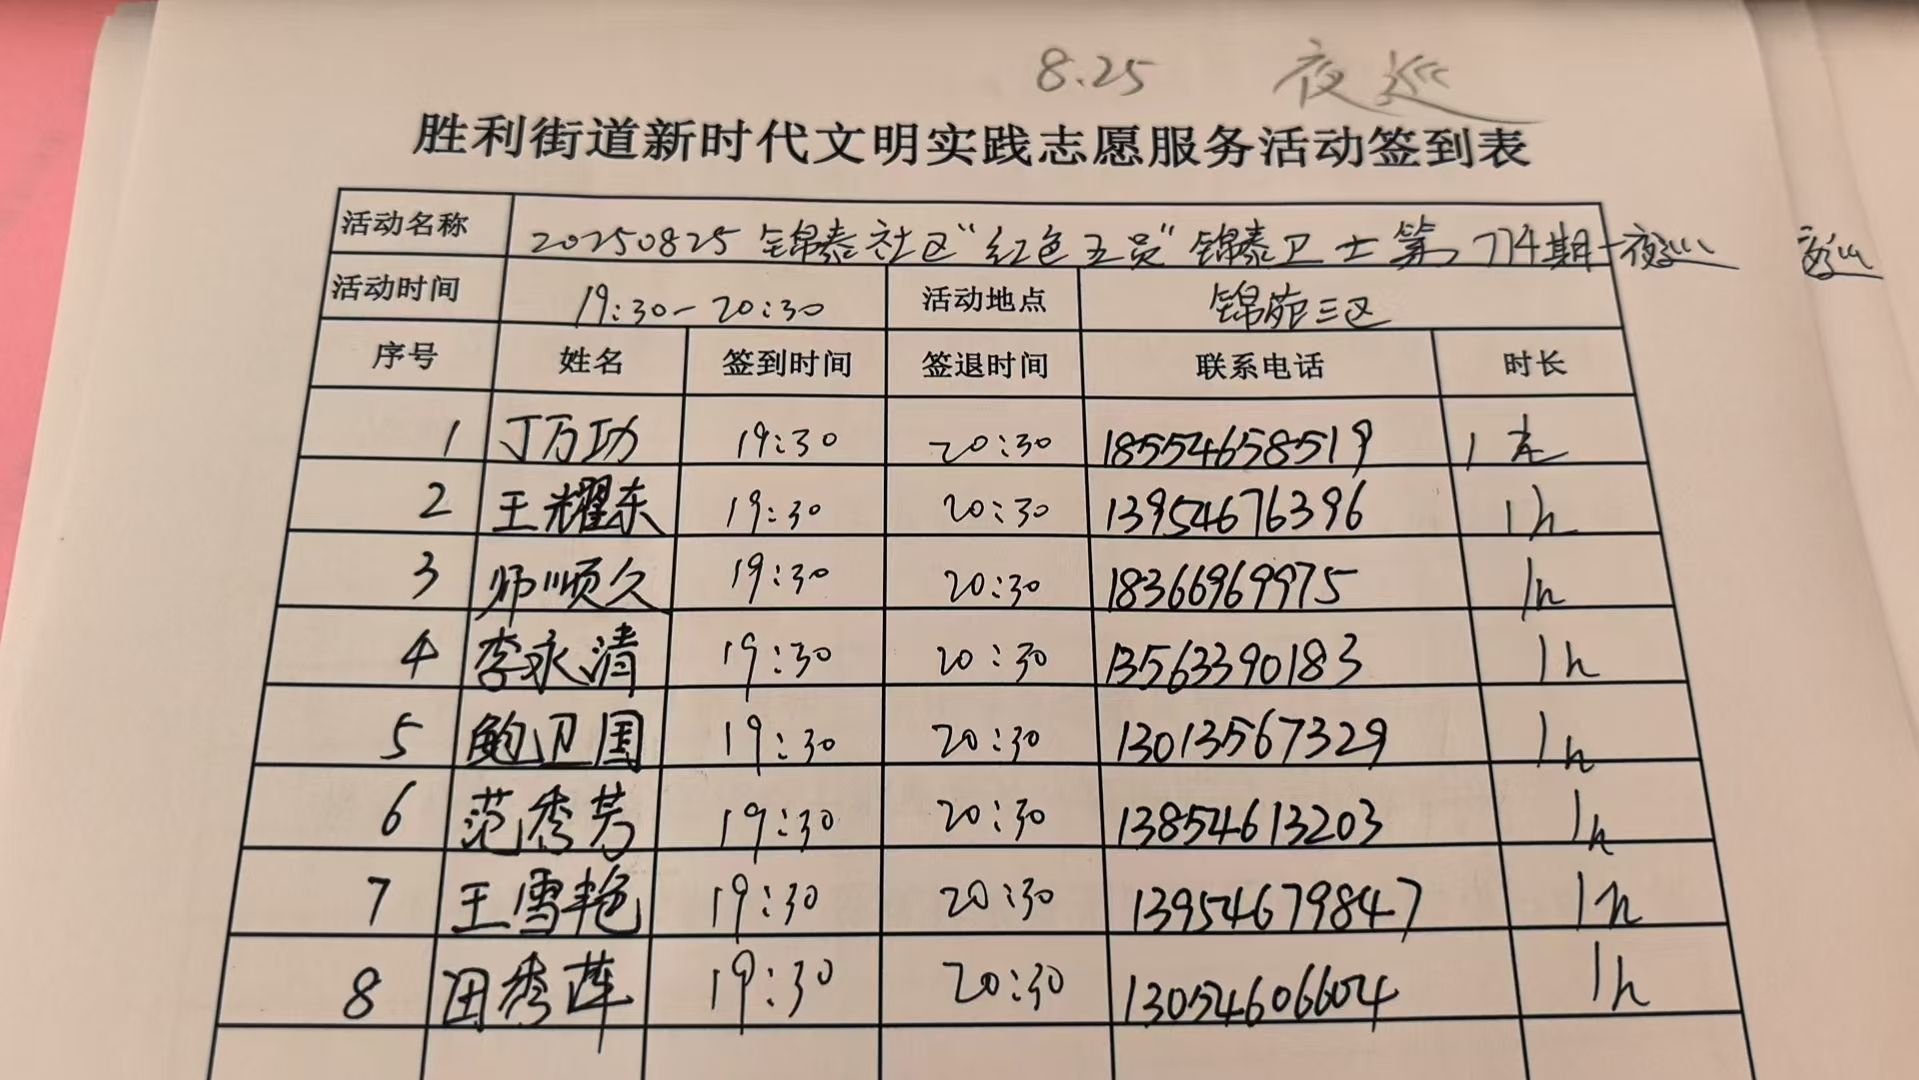 8.25 夜巡
胜利街道新时代文明实践志愿服务活动签到表
活动名称 20250825 锦泰社区“红色五员”锦泰卫士第774期-夜巡 夜巡
活动时间 19:30-20:30 活动地点 锦苑三区
序号 姓名 签到时间 签退时间 联系电话 时长
1 丁万功 19:30 20:30 18554658519 1
2 王耀东 19:30 20:30 13954676396 1h
3 师顺久 19:30 20:30 18366969975 1h
4 李永清 19:30 20:30 13563390183 1h
5 鲍卫国 19:30 20:30 13013567329 1h
6 范秀芳 19:30 20:30 13854613203 1h
7 王雪艳 19:30 20:30 13954679847 1h
8 田秀莲 19:30 20:30 13054606604 1h